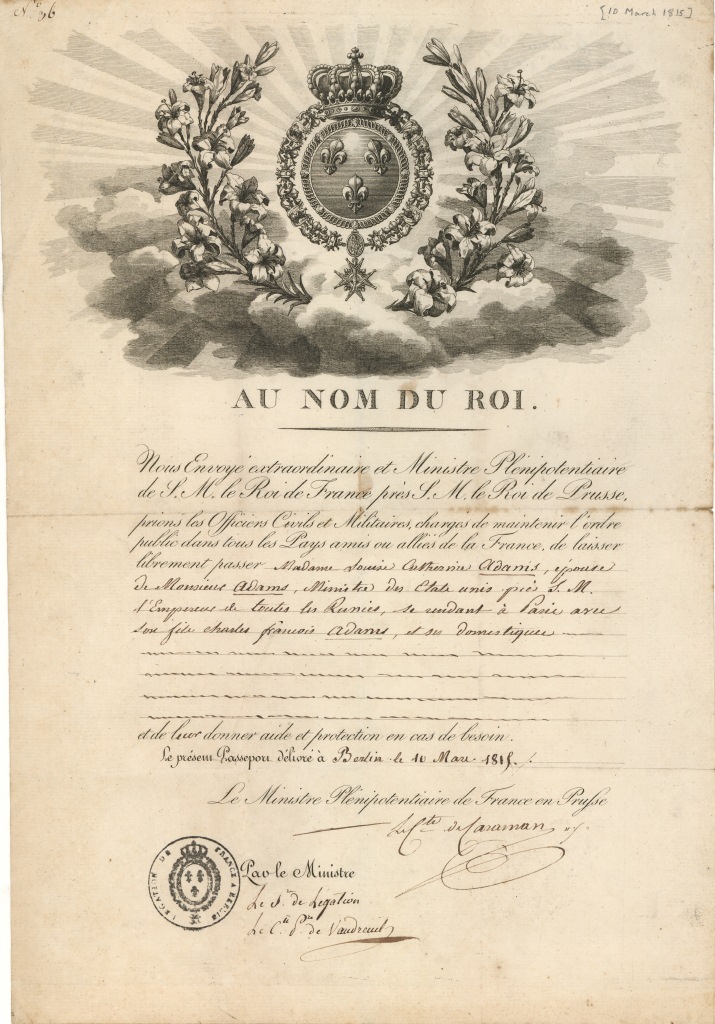 N.º 96
[10 March 1815]
AU NOM DU ROI.
Nous Envoyé extraordinaire et Ministre Plénipotentiaire
de S. M. le Roi de France près S. M. le Roi de Prusse,
prions les Officiers Civils et Militaires, chargés de maintenir l'ordre
public dans tous les Pays amis ou alliés de la France, de laisser
librement passer Madame Louise Catherine Adams, épouse
de Monsieur Adams, Ministre des Etats unis près S. M.
l'Empereur de toutes les Russies, se rendant à Paris avec
son fils charles françois Adams, et ses domestiques
et de leur donner aide et protection en cas de besoin.
Le présent Passeport délivré à Berlin le 10 Mars 1815.
Le Ministre Plénipotentiaire de France en Prusse
Le Cte de Caraman
LEGATION DE FRANCE A BERLIN
Par le Ministre
Le S.re de Légation
Le Cte Pre de Vaudreuil